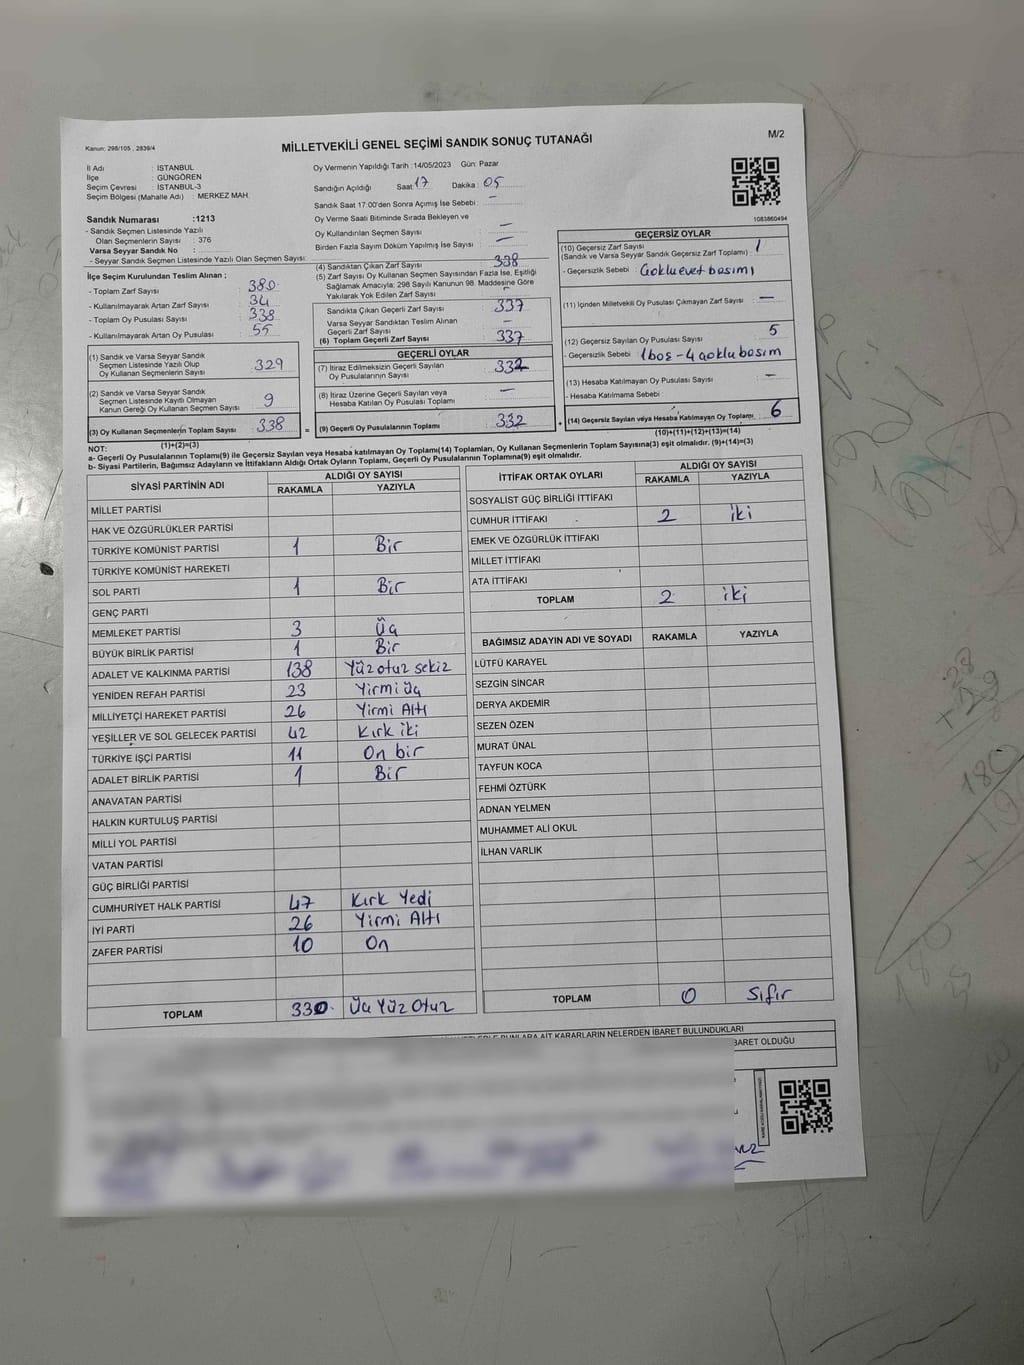 Kanun: 298/105 , 2839/4
MİLLETVEKİLİ GENEL SEÇİMİ SANDIK SONUÇ TUTANAĞI
M/2
İl Adı : İSTANBUL
İlçe : GÜNGÖREN
Seçim Çevresi : İSTANBUL-3
Seçim Bölgesi (Mahalle Adı) : MERKEZ MAH.
Sandık Numarası :1213
- Sandık Seçmen Listesinde Yazılı
Olan Seçmenlerin Sayısı : 376
Varsa Seyyar Sandık No :
- Seyyar Sandık Seçmen Listesinde Yazılı Olan Seçmen Sayısı:
Oy Vermenin Yapıldığı Tarih :14/05/2023 Gün: Pazar
Sandığın Açıldığı Saat 17 Dakika : 05
Sandık Saat 17:00'den Sonra Açımış İse Sebebi : –
Oy Verme Saati Bitiminde Sırada Bekleyen ve
Oy Kullandırılan Seçmen Sayısı : –
Birden Fazla Sayım Döküm Yapılmış İse Sayısı : –
1083860494
İlçe Seçim Kurulundan Teslim Alınan ;
- Toplam Zarf Sayısı : 380
- Kullanılmayarak Artan Zarf Sayısı : 34
- Toplam Oy Pusulası Sayısı : 338
- Kullanılmayarak Artan Oy Pusulası : 55
(1) Sandık ve Varsa Seyyar Sandık
Seçmen Listesinde Yazılı Olup
Oy Kullanan Seçmenlerin Sayısı : 329
(2) Sandık ve Varsa Seyyar Sandık
Seçmen Listesinde Kayıtlı Olmayan
Kanun Gereği Oy Kullanan Seçmen Sayısı : 9
(3) Oy Kullanan Seçmenlerin Toplam Sayısı : 338
(1)+(2)=(3)
(4) Sandıktan Çıkan Zarf Sayısı : 338
(5) Zarf Sayısı Oy Kullanan Seçmen Sayısından Fazla İse, Eşitliği
Sağlamak Amacıyla; 298 Sayılı Kanunun 98. Maddesine Göre
Yakılarak Yok Edilen Zarf Sayısı : –
Sandıkta Çıkan Geçerli Zarf Sayısı : 337
Varsa Seyyar Sandıktan Teslim Alınan
Geçerli Zarf Sayısı : –
(6) Toplam Geçerli Zarf Sayısı : 337
GEÇERLİ OYLAR
(7) İtiraz Edilmeksizin Geçerli Sayılan
Oy Pusulalarının Sayısı : 332
(8) İtiraz Üzerine Geçerli Sayılan veya
Hesaba Katılan Oy Pusulası Toplamı : –
= (9) Geçerli Oy Pusulalarının Toplamı : 332 +
GEÇERSİZ OYLAR
(10) Geçersiz Zarf Sayısı : 1
(Sandık ve Varsa Seyyar Sandık Geçersiz Zarf Toplamı)
- Geçersizlik Sebebi : Çoklu evet basımı
(11) İçinden Milletvekili Oy Pusulası Çıkmayan Zarf Sayısı : –
(12) Geçersiz Sayılan Oy Pusulası Sayısı : 5
- Geçersizlik Sebebi : 1 boş - 4 çoklu basım
(13) Hesaba Katılmayan Oy Pusulası Sayısı : –
- Hesaba Katılmama Sebebi :
(14) Geçersiz Sayılan veya Hesaba Katılmayan Oy Toplamı : 6
(10)+(11)+(12)+(13)=(14)
NOT:
a- Geçerli Oy Pusulalarının Toplamı(9) ile Geçersiz Sayılan veya Hesaba katılmayan Oy Toplamı(14) Toplamları, Oy Kullanan Seçmenlerin Toplam Sayısına(3) eşit olmalıdır. (9)+(14)=(3)
b- Siyasi Partilerin, Bağımsız Adayların ve İttifakların Aldığı Ortak Oyların Toplamı, Geçerli Oy Pusulalarının Toplamına(9) eşit olmalıdır.
SİYASİ PARTİNİN ADI ALDIĞI OY SAYISI
RAKAMLA YAZIYLA
MİLLET PARTİSİ
HAK VE ÖZGÜRLÜKLER PARTİSİ
TÜRKİYE KOMÜNİST PARTİSİ 1 Bir
TÜRKİYE KOMÜNİST HAREKETİ
SOL PARTİ 1 Bir
GENÇ PARTİ
MEMLEKET PARTİSİ 3 Üç
BÜYÜK BİRLİK PARTİSİ 1 Bir
ADALET VE KALKINMA PARTİSİ 138 Yüz otuz sekiz
YENİDEN REFAH PARTİSİ 23 Yirmi üç
MİLLİYETÇİ HAREKET PARTİSİ 26 Yirmi Altı
YEŞİLLER VE SOL GELECEK PARTİSİ 42 Kırk iki
TÜRKİYE İŞÇİ PARTİSİ 11 On bir
ADALET BİRLİK PARTİSİ 1 Bir
ANAVATAN PARTİSİ
HALKIN KURTULUŞ PARTİSİ
MİLLİ YOL PARTİSİ
VATAN PARTİSİ
GÜÇ BİRLİĞİ PARTİSİ
CUMHURİYET HALK PARTİSİ 47 Kırk Yedi
İYİ PARTİ 26 Yirmi Altı
ZAFER PARTİSİ 10 On
TOPLAM 330 Üç Yüz Otuz
İTTİFAK ORTAK OYLARI ALDIĞI OY SAYISI
RAKAMLA YAZIYLA
SOSYALİST GÜÇ BİRLİĞİ İTTİFAKI
CUMHUR İTTİFAKI 2 iki
EMEK VE ÖZGÜRLÜK İTTİFAKI
MİLLET İTTİFAKI
ATA İTTİFAKI
TOPLAM 2 iki
BAĞIMSIZ ADAYIN ADI VE SOYADI RAKAMLA YAZIYLA
LÜTFÜ KARAYEL
SEZGİN SİNCAR
DERYA AKDEMİR
SEZEN ÖZEN
MURAT ÜNAL
TAYFUN KOCA
FEHMİ ÖZTÜRK
ADNAN YELMEN
MUHAMMET ALİ OKUL
İLHAN VARLIK
TOPLAM 0 Sıfır
AİT KARARLARIN NELERDEN İBARET BULUNDUKLARI
BARET OLDUĞU
28
180